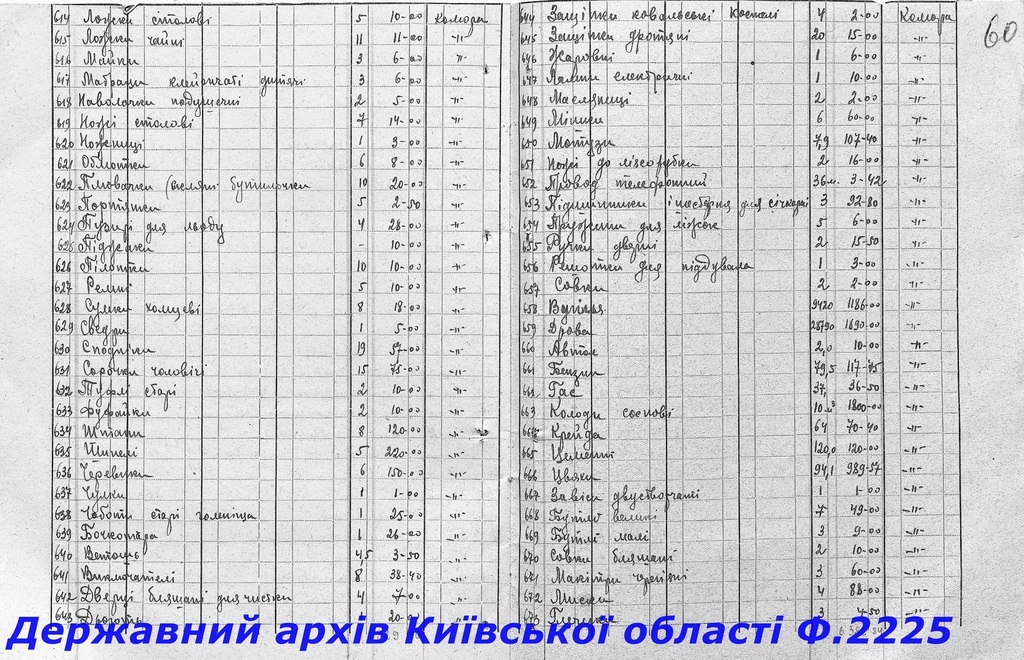 614 Ложки столові 5 10-00 Комора
615 Ложки чайні 11 11-00 -"-
616 Майки 3 6-00 -"-
617 Матраци клейончаті дитячі 3 6-00 -"-
618 Наволочки подушечні 2 5-00 -"-
619 Ножі столові 7 14-00 -"-
620 Ножниці 1 3-00 -"-
621 Обмотки 6 8-00 -"-
622 Пльовачки бутилочки 10 20-00 -"-
623 Портянки 5 2-50 -"-
624 Пузирі для льоду 4 28-00 -"-
625 Піджаки - 10-00 -"-
626 Пілотки 10 10-00 -"-
627 Ремні 5 10-00 -"-
628 Сумки холщеві 8 18-00 -"-
629 Сведри 1 5-00 -"-
630 Сподніки 19 57-00 -"-
631 Сорочки чоловічі 15 75-00 -"-
632 Туфлі старі 2 10-00 -"-
633 Фуфайки 2 10-00 -"-
634 Штани 8 120-00 -"-
635 Шинелі 5 220-00 -"-
636 Черевики 6 150-00 -"-
637 Чулки 1 1-00 -"-
638 Чоботи старі голеніща 1 25-00 -"-
639 Бочкотара 1 26-00 -"-
640 Ветош 4,5 3-50 -"-
641 Виключателі 8 38-40 -"-
642 Дверці бляшані для чистки 4 7-00 -"-
643 Дьоготь
60
644 Защіпки ковальські 4 2-00 Комора
645 Защіпки дротяні 20 15-00 -"-
646 Жаровні 1 6-00 -"-
647 Лампи електричні 1 10-00 -"-
648 Масляниці 2 2-00 -"-
649 Мішки 6 60-00 -"-
650 Мотузи 7,9 107-40 -"-
651 Ножі до мясорубки 2 16-00 -"-
652 Провод телефонний 36м. 3-42 -"-
653 Підшипники для січкарні 3 92-80 -"-
654 Пружини для ліжок 5 6-00 -"-
655 Ручки дверні 2 15-50 -"-
656 для піддувала 1 3-00 -"-
657 Совки 2 2-00 -"-
658 Вугілля 9420 1186-00 -"-
659 Дрова 28790 1690-00 -"-
660 Автол 2,0 10-00 -"-
661 Бензин 79,5 117-75 -"-
662 Гас 37, 36-50 -"-
663 Колоди соснові 10 м³ 1800-00 -"-
664 Крейда 64 70-40 -"-
665 Цемент 120,0 120-00 -"-
666 Цвяхи 94,1 989-57 -"-
667 Завіси двустворчаті 1 1-00 -"-
668 Бутлі великі 7 49-00 -"-
669 Бутлі малі 3 9-00 -"-
670 Совки бляшані 2 10-00 -"-
671 Макітри череп'яні 3 60-00 -"-
672 Миски 4 88-00 -"-
673 Глечики 3 4-50
Державний архів Київської області Ф.2225